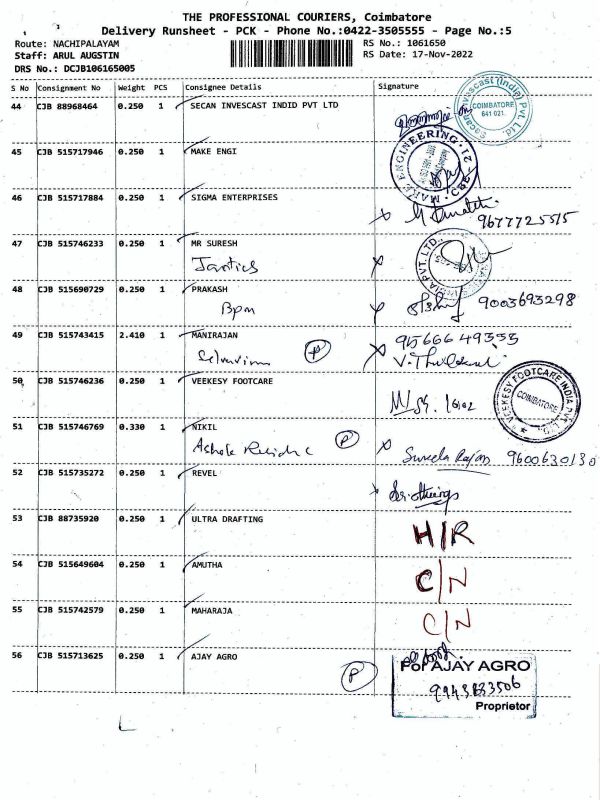 THE PROFESSIONAL COURIERS, Coimbatore
Delivery Runsheet - PCK - Phone No.:0422-3505555 - Page No.:5
Route: NACHIPALAYAM
RS No.: 1061650
Staff: ARUL AUGSTIN
RS Date: 17-Nov-2022
DRS No.: DCJB106165005
S No Consignment No Weight PCS Consignee Details Signature
44 CJB 88968464 0.250 1 SECAN INVESCAST INDID PVT LTD
COIMBATORE
641 021
45 CJB 515717946 0.250 1 MAKE ENGI
MAKE ENGINEERING
CBE
46 CJB 515717884 0.250 1 SIGMA ENTERPRISES
9677725515
47 CJB 515746233 0.250 1 MR SURESH
Jantics
48 CJB 515690729 0.250 1 PRAKASH
Bpm
9003693298
49 CJB 515743415 2.410 1 MANIRAJAN
P
50 CJB 515746236 0.250 1 VEEKESY FOOTCARE
VEEKESY FOOTCARE INDIA PVT. LTD.
COIMBATORE
51 CJB 515746769 0.330 1 NIKIL
Ashok
P
9600630130
52 CJB 515735272 0.250 1 REVEL
53 CJB 88735920 0.250 1 ULTRA DRAFTING
H/R
54 CJB 515649604 0.250 1 AMUTHA
C/N
55 CJB 515742579 0.250 1 MAHARAJA
C/N
56 CJB 515713625 0.250 1 AJAY AGRO
P
For AJAY AGRO
Proprietor